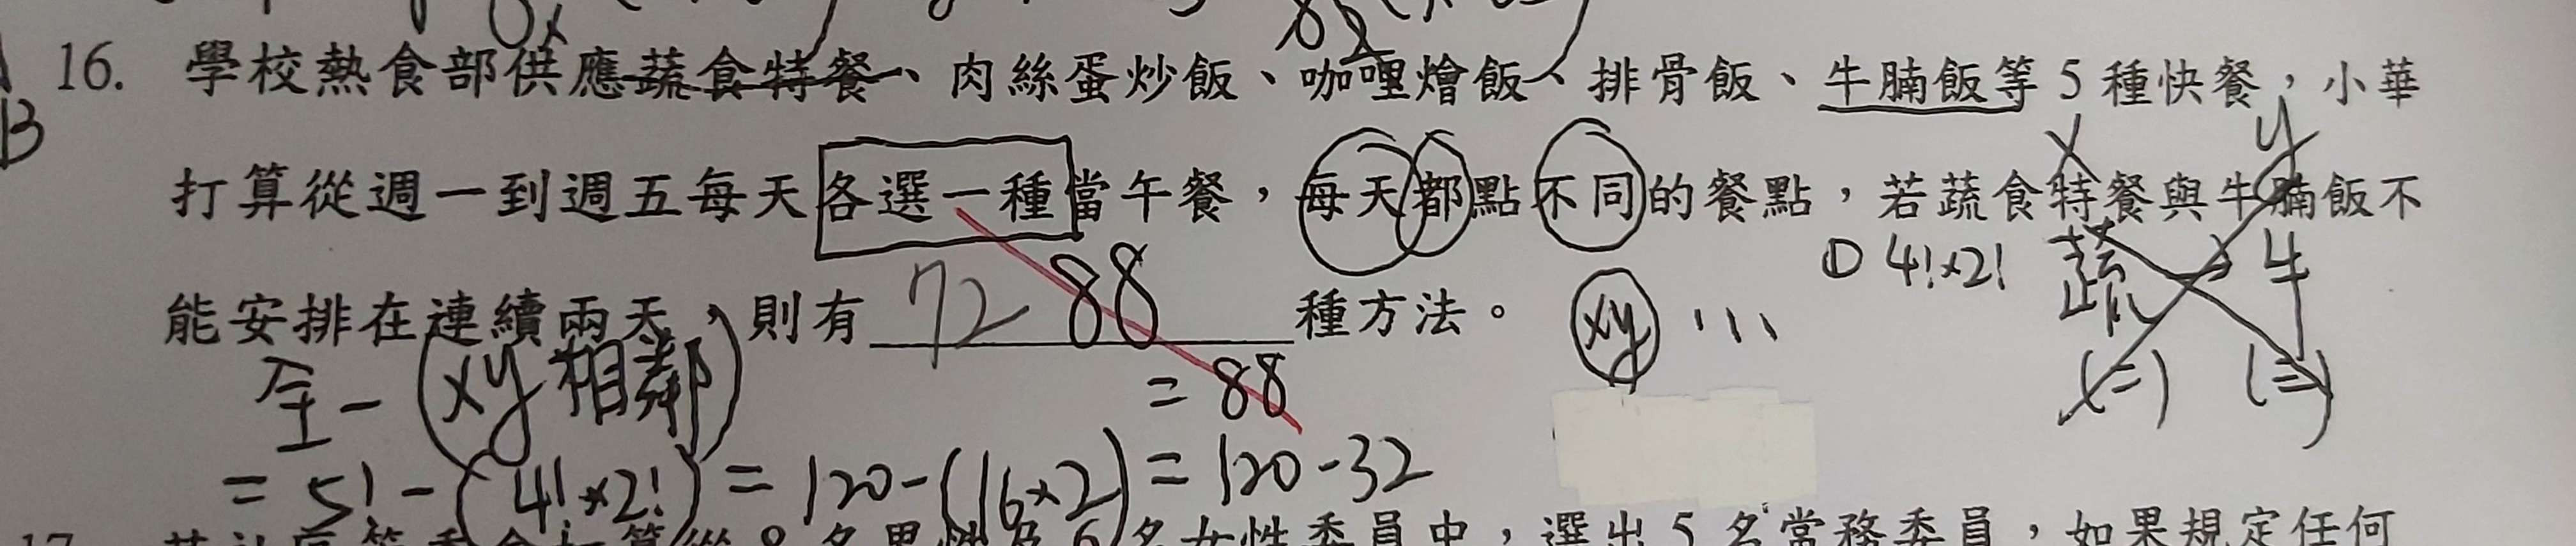 16. 學校熱食部供應蔬食特餐、肉絲蛋炒飯、咖哩燴飯、排骨飯、牛腩飯等 5 種快餐，小華
B
x y
打算從週一到週五每天各選一種當午餐，每天都點不同的餐點，若蔬食特餐與牛腩飯不
① 4!×2! 蔬 牛
能安排在連續兩天，則有 72 88 種方法。 xy
(二) (三)
全-(xy相鄰) = 88
= 5!-(4!×2!) = 120-(16×2) = 120-32
名女性委員中，選出 5 名常務委員，如果規定任何